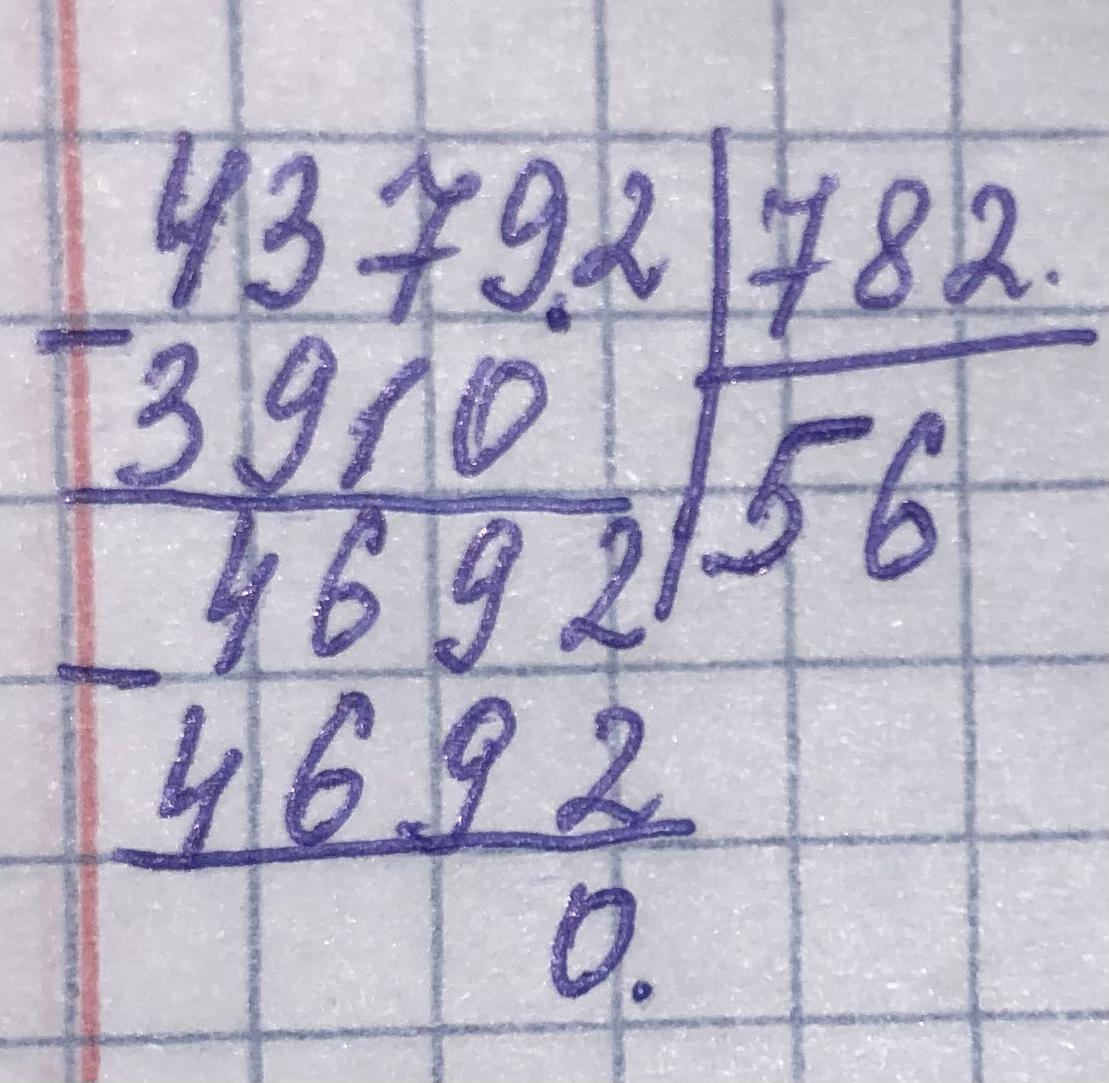 4379.2 782.
- 3910 56
4692
- 4692
0.